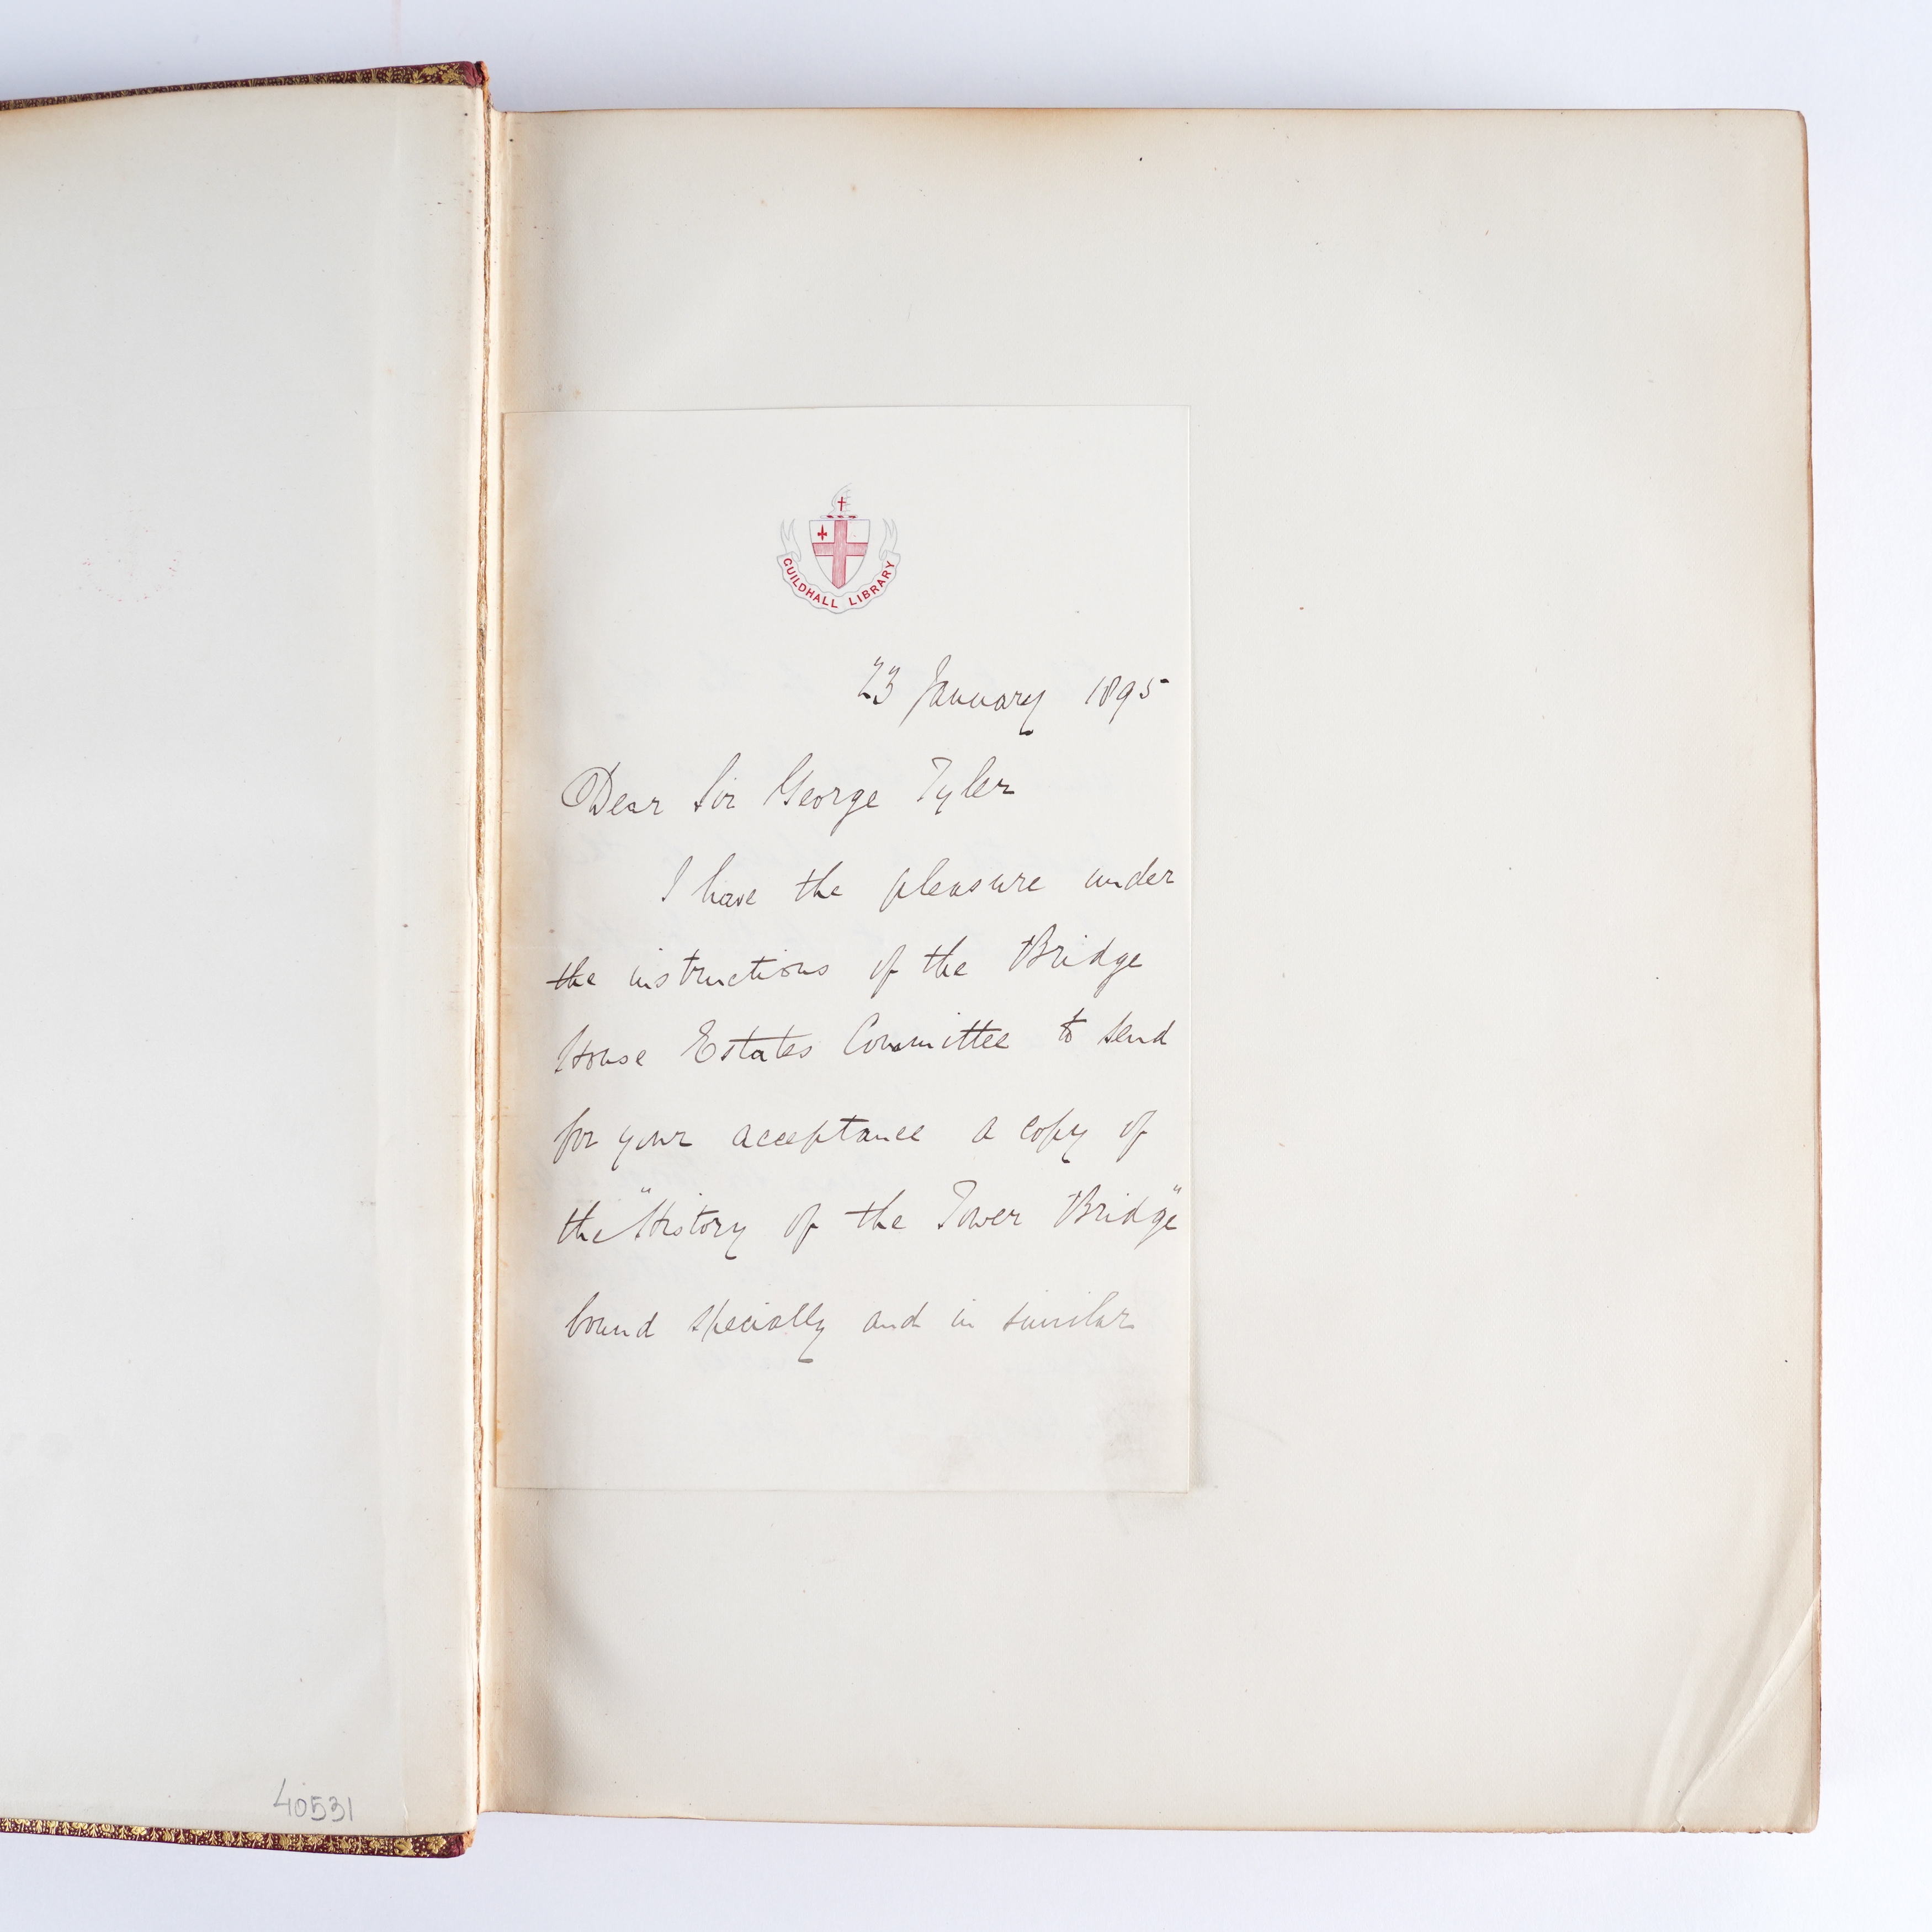 GUILDHALL LIBRARY
23 January 1895
Dear Sir George Tyler
I have the pleasure under
the instructions of the Bridge
House Estates Committee to send
for your acceptance a copy of
the "History of the Tower Bridge"
bound specially and in similar
40531